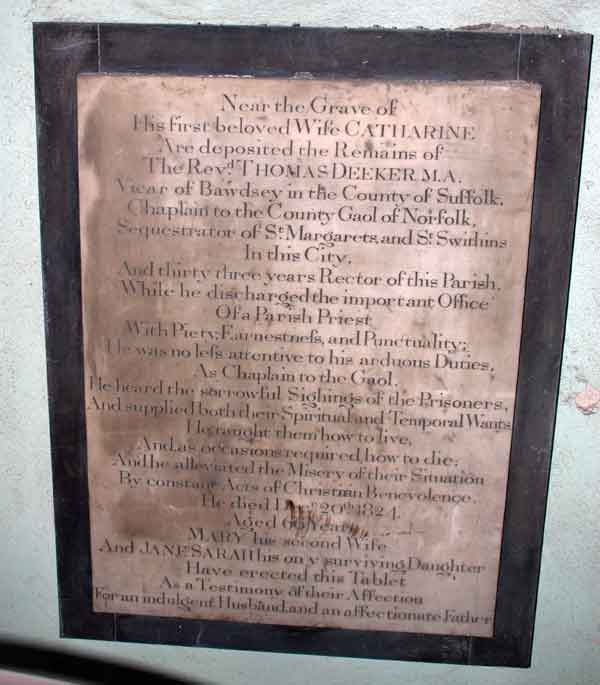 Near the Grave of
His first beloved Wife CATHARINE
Are deposited the Remains of
The Revd. THOMAS DEEKER M.A.
Vicar of Bawdsey in the County of Suffolk,
Chaplain to the County Gaol of Norfolk,
Sequestrator of St. Margarets, and St. Swithins
In this City,
And thirty three years Rector of this Parish.
While he discharged the important Office
Of a Parish Priest
With Piety, Earnestneſs, and Punctuality;
He was no leſs attentive to his arduous Duties,
As Chaplain to the Gaol.
He heard the sorrowful Sighings of the Prisoners,
And supplied both their Spiritual and Temporal Wants
He taught them how to live,
And, as occasions required, how to die;
And he alleviated the Misery of their Situation
By constant Acts of Christian Benevolence.
He died 20th. 1824.
Aged 66 Years
MARY his second Wife
And JANE SARAH his only surviving Daughter
Have erected this Tablet
As a Testimony of their Affection
For an indulgent Husband, and an affectionate Father